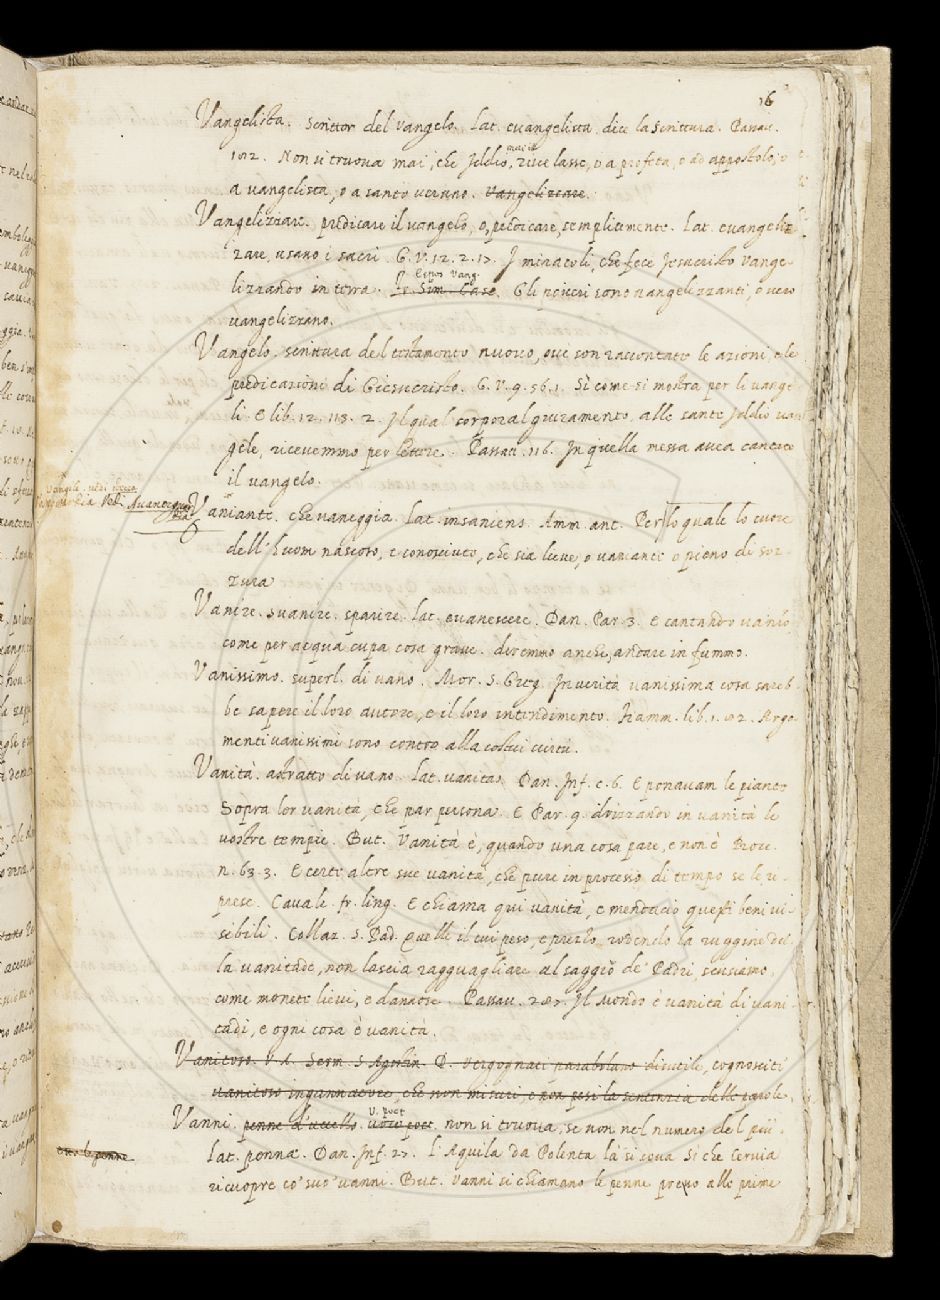 16
Vangelista. Scrittor del vangelo. Lat. evangelista. dice la scrittura. Passav.
102. Non si truova mai, che Iddio, mai si lasse, o a profeta, o ad appostolo, o
a vangelista, o a santo veruno. Vangelizzare.
Vangelizzare. predicare il vangelo, o, predicare, semplicemente. Lat. evangeliz-
zare, usano i sacri. G. V. 12. 2. 17. I miracoli, che fece Jesucristo vange-
Espos. Vang.
lizzando in terra. Fr. Sim. Casc. Gli poveri sono vangelizzanti, o vero
vangelizzano.
Vangelo. scrittura del testamento nuovo, ove son raccontate le azioni, e le
predicazioni di Giesucristo. G. V. 9. 56. 1. Sì come si mostra per li vange-
li. E lib. 12. 113. 2. Il qual corporal giuramento, alle sante Iddio van-
gele, ricevemmo per lettere. Passav. 116. In quella messa avea cantato
il vangelo.
Vangeli. vedi
Vaniante. che vaneggia. Lat. insaniens. Amm. ant. Per lo quale lo cuore
dell'huom nascoso, è conosciuto, che sia lieve, o vaniante o pieno di soz-
zura
Vanire. svanire. sparire. lat. evanescere. Dan. Par. 3. e cantando vanío,
come per acqua cupa cosa grave. diremmo anche, andare in fummo.
Vanissimo. superl. di vano. Mor. S. Greg. In verità vanissima cosa sareb-
be sapere il loro autore, e il loro intendimento. Fiamm. lib. 1. 82. Argo-
menti vanissimi sono contro alla costui virtù.
Vanità. astratto di vano. lat. vanitas. Dan. Inf. c. 6. E ponavam le piante
Sopra lor vanità, che par persona. E Par. 9. drizzando in vanità le
vostre tempie. But. Vanità è, quando una cosa pare, e non è Bocc.
n. 63. 3. E certe altre sue vanità, che pure in processo di tempo se le ri-
prese. Cavalc. fr. ling. E chiama qui vanità, e mendacio questi beni vi-
sibili. Collaz. S. Pad. Quelle il cui peso, e pregio, rodendo la ruggine del-
la vanitade, non lascia ragguagliare al saggio de' Padri, sensiamo,
come monete lievi, e dannose. Passav. 287. Il Mondo è vanità di vani-
tadi, e ogni cosa è vanità.
Vanitoso. V. A. Serm. S. Agostin. D. Vergognati parabolano disutile, cognosciti
vanitoso ingannatore, che non misuri, e non pesi la sentenzia delle parole.
Vanni. penne d'uccello. voce poet. V. poet. non si truova, se non nel numero del più.
ovv. le penne
Lat. penna. Dan. Inf. 27. L'Aquila da Polenta là si cova Sì che Cervia
ricuopre co' suo' vanni. But. Vanni si chiamano le penne presso alle prime